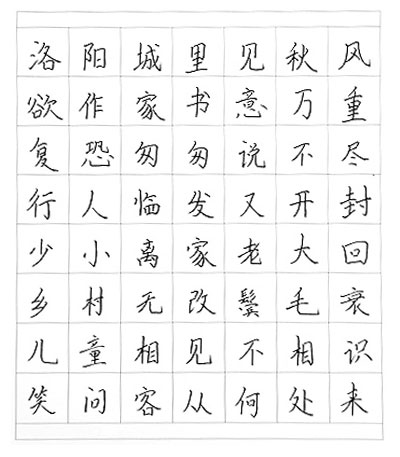 洛阳城里见秋风
欲作家书意万重
复恐匆匆说不尽
行人临发又开封
少小离家老大回
乡村无改鬓毛衰
儿童相见不相识
笑问客从何处来